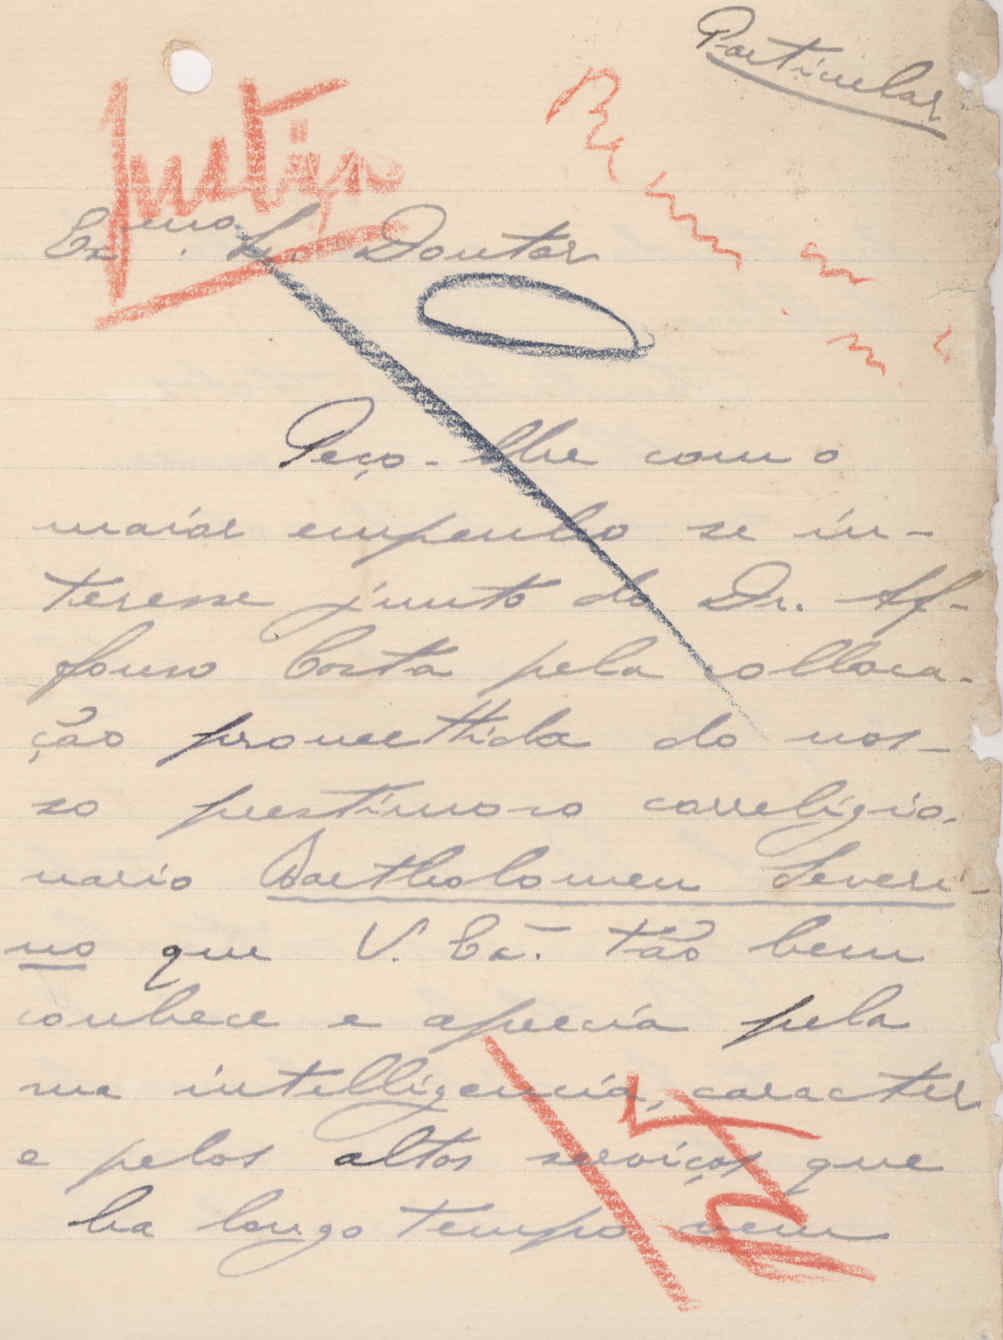 Particular
Justiça
Exmo. Sr. Doutor
Peço-lhe com o
maior empenho se in-
teresse junto do Dr. Af-
fonso Costa pela colloca-
ção promettida do nos-
so prestimoso correligio-
nario Bartholomeu Severi-
no que V. Exa. tão bem
conhece e aprecia pela
sua intelligencia, caracter
e pelos altos serviços que
ha longo tempo vem